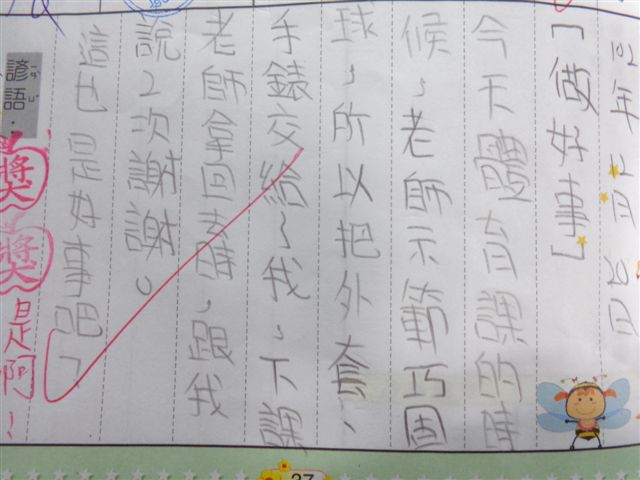 102年12月20日
「做好事」
今天體育課的時
候,老師示範巧固
球,所以把外套、
手錶交給了我,下課
老師拿回去時,跟我
說2次謝謝。
這也是好事吧!
諺語:
獎
獎
是啊!
27